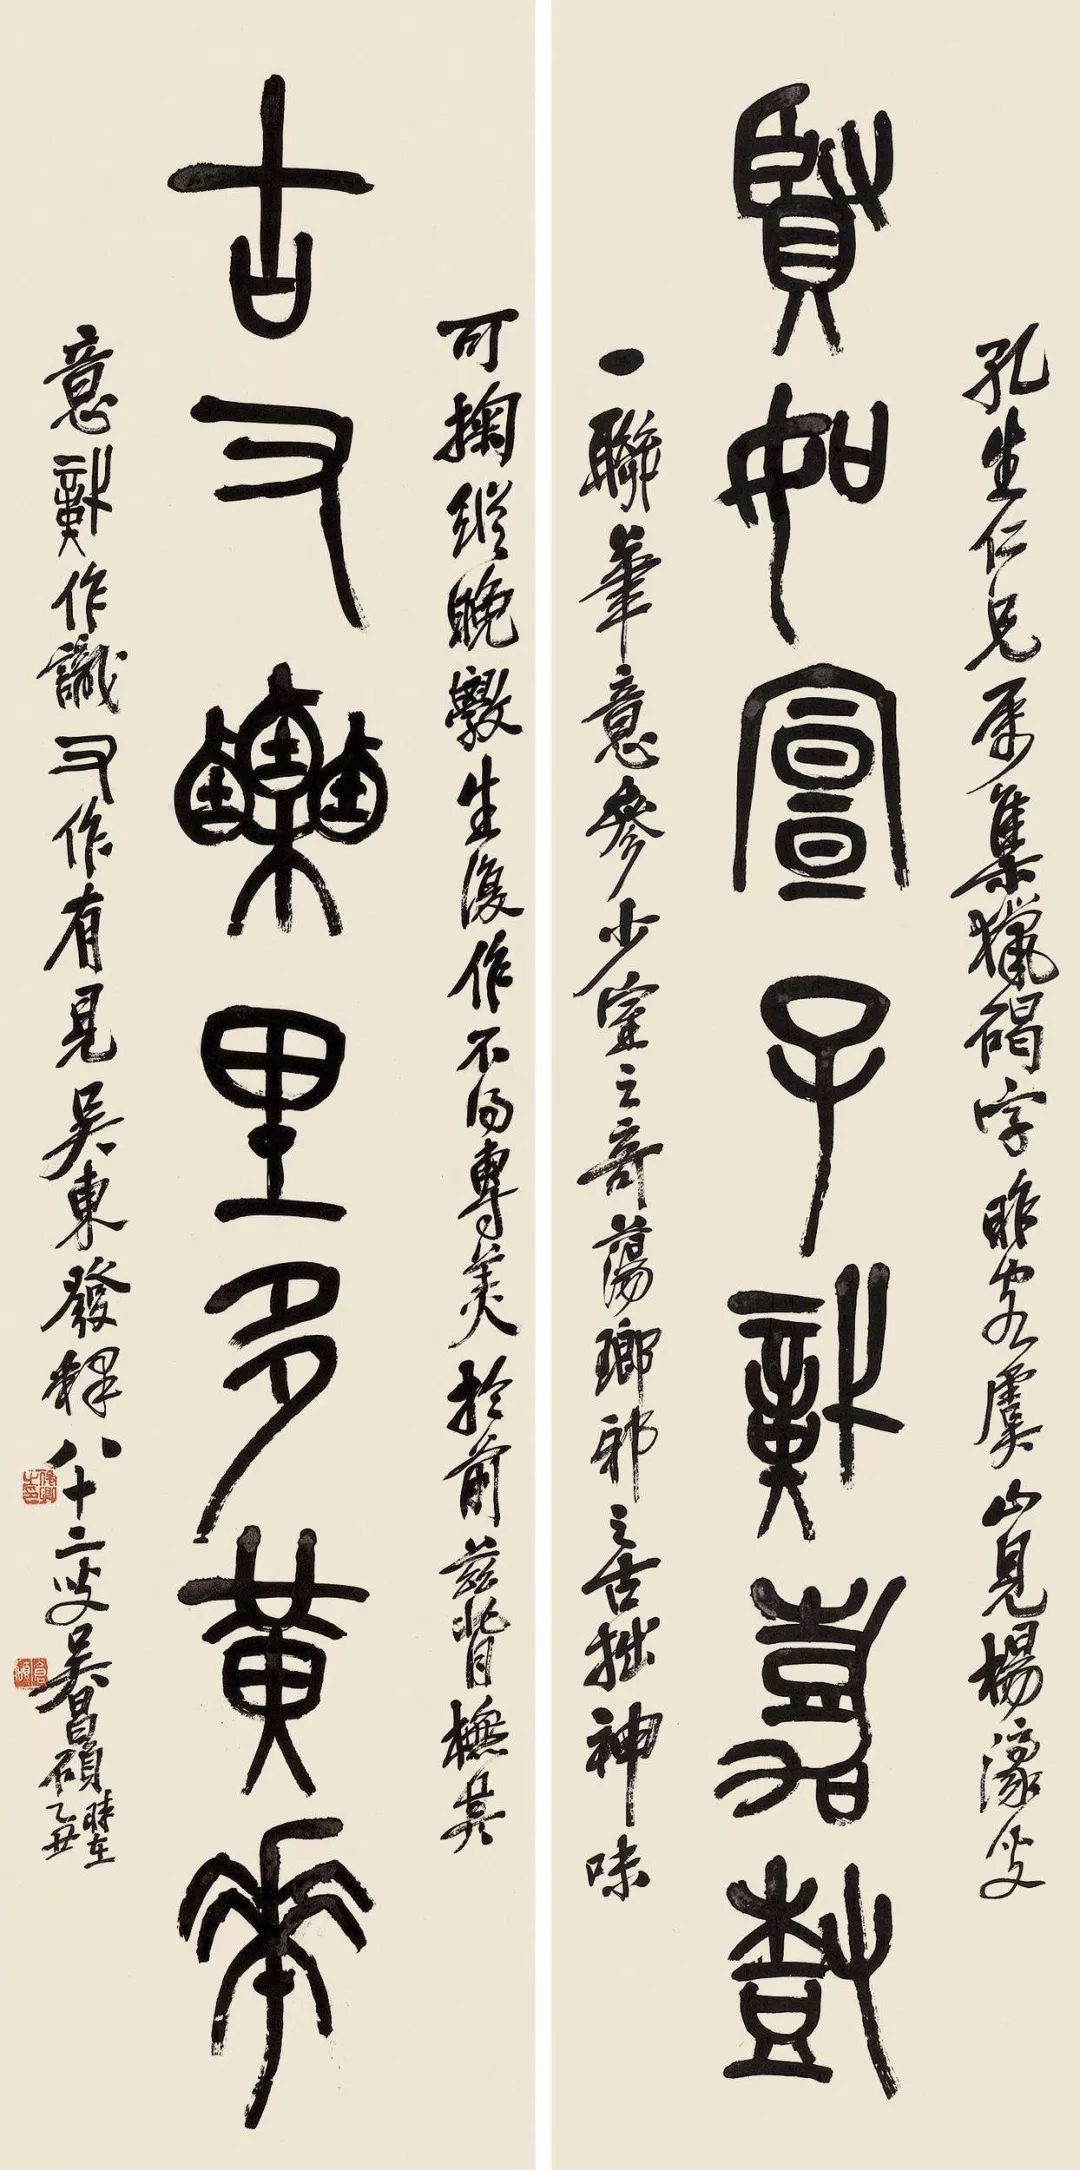 賢如宣子嘉樹
古又栗里多黃華
孔生仁兄屬集獵碣字昨客虞山見楊濠叟
一聯筆意參少室之奇蕩瑯邪之古拙神味
可掬縱晚斅生復作不得專美於前茲背橅其
意作識又作有見吳東發釋八十二叟吳昌碩時在乙丑
俊卿之印
倉碩